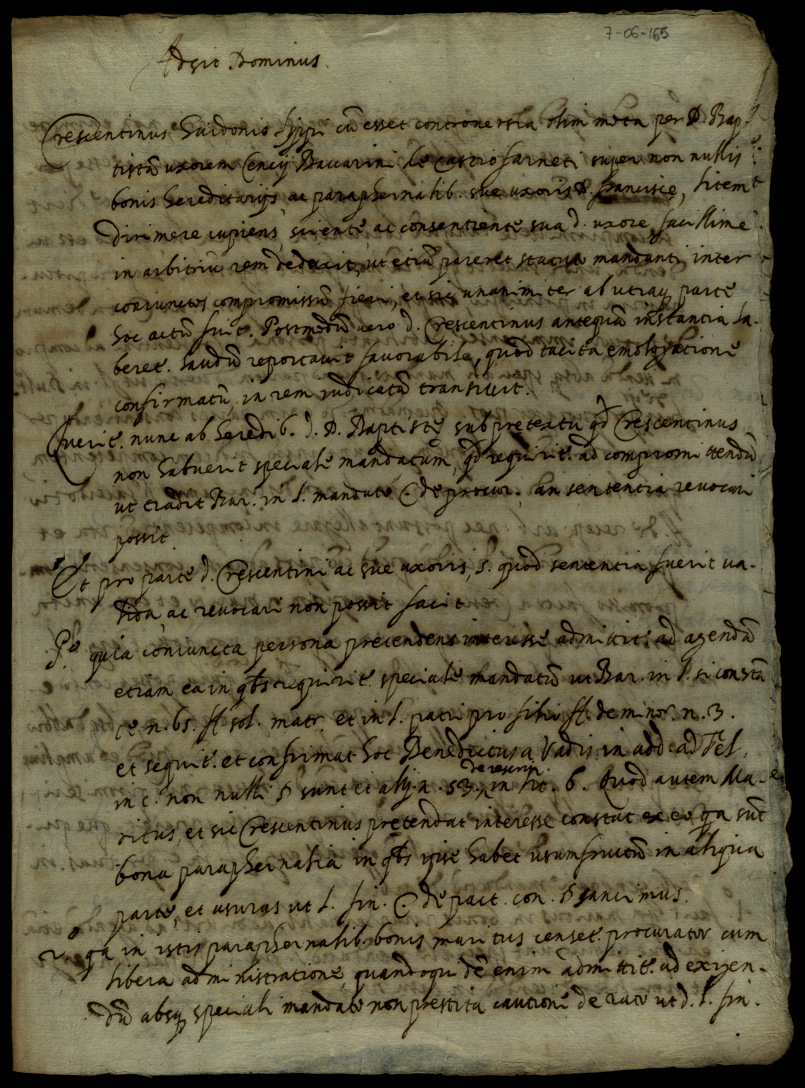 7-06-165
Adsit Dominus.
Crescentinus Guidonis cū esset controversia olim mota per D. Bap-
tistā uxorem Baccarini de Castro super non nullis
bonis hereditarijs ac paraphernalib. sue uxoris D. Francisce, litem
Dirimere cupiens, sciente, ac consentiente sua d. uxore facillime
in arbitriū rem deduxit, ut etiā pareret statuto mandanti inter
coniunctos compromissū fieri, et sic unanimiter ab utraq; parte
hoc actū fuit. Postmodū vero d. Crescentinus antequā instantia la-
beret. laudū reportavit favorabile, quod tacita emologatione
confirmatū, in rem iudicatā transivit.
Querit. nunc ab heredib. d. D. Baptiste sub pretextu qd Crescentinus
non habuerit speciale mandatum, qd requirit. ad compromittendū
ut tradit Bar. in l. mandato C. de procur., an sententia revocari
possit
Et pro parte d. Crescentini ac sue uxoris, s. quod sententia fuerit va-
lida, ac revocari non possit facit
P.º quia coniuncta persona pretendens interesse admittit. ad agendū
etiam ea in qbs requirit. speciale mandatū ut Bar. in l. si constā
te n. 65. ff. sol. matr. et in l. patri pro filio ff. de minor. n. 3.
et sequit. et confirmat hoc Benedictus a Vadis in add. ad Fel.
in c. non nulli § sunt et alij n. 53. de rescrip. in lit. b. Quod autem Ma-
ritus, et sic Crescentinus pretendat interesse constat ex eo qa sūt
bona paraphernalia in qbs ipse habet usumfructū in aliqua
parte, et usuras ut l. fin. C. de pact. con. § sancimus.
2.º qa in istis paraphernalib. bonis maritus censet. procurator cum
libera administratione, quandoqui dē enim admittit. ad exigen-
dū absq; speciali mandato non prestita cautione de rato ut d. l. fin.